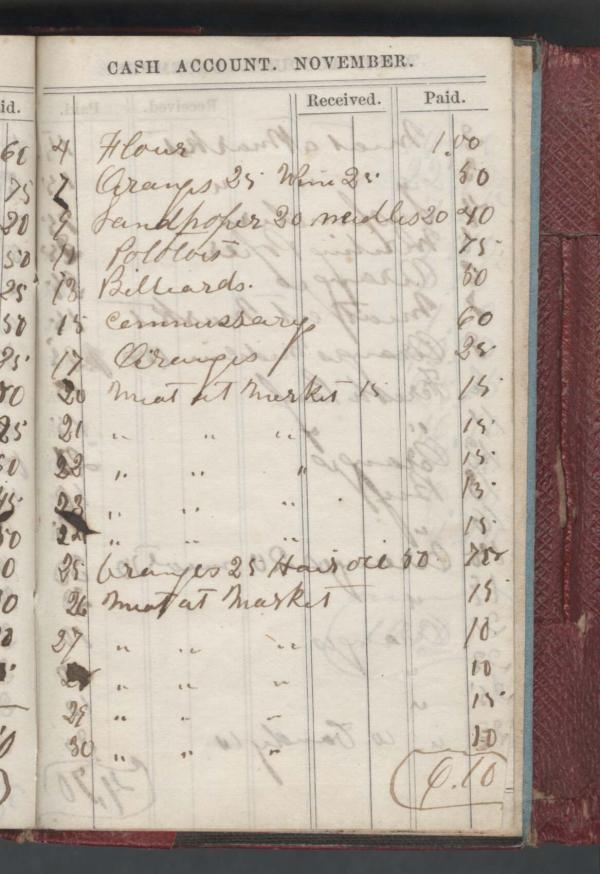 CASH ACCOUNT. NOVEMBER.
id. Received. Paid.
60 4 Flour 1.00
75 7 Oranges 25 Wine 25 50
20 9 Sandpaper 20 needles 20 40
50 11 75
25 13 Billiards. 50
50 15 Commissary 60
25 17 Oranges 25
20 Meat at Market 15 15
25 21 " " " 15
50 22 " " " 15
45 23 " " " 15
50 24 " " " 15
0 25 Oranges 25 Hair oil 50 75
0 26 Meat at Market 15
27 " " " 10
28 " " " 10
29 " " " 15
30 " " " 10
6.10